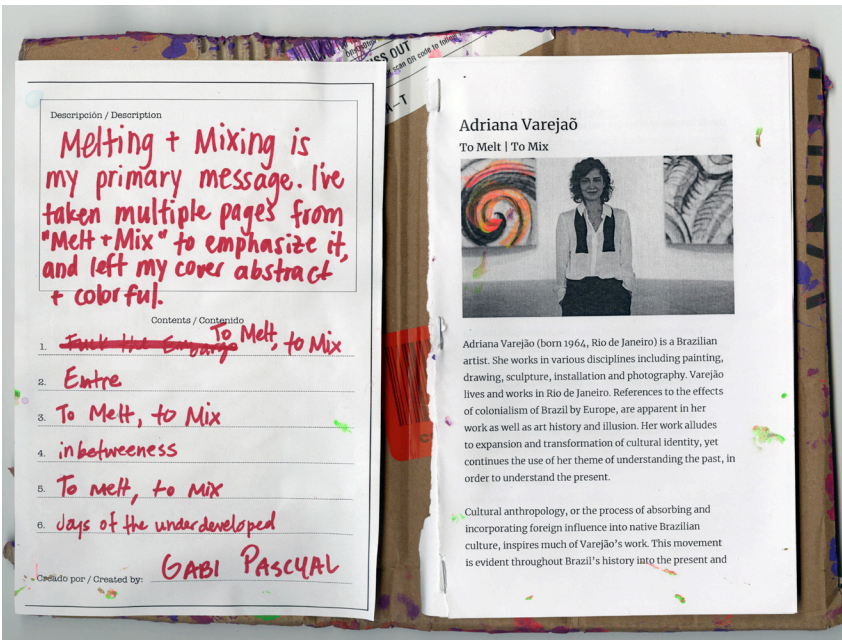 SS OUT
scan QR code to follow
A-T
Descripción / Description
Melting + Mixing is
my primary message. I've
taken multiple pages from
"Melt + Mix" to emphasize it,
and left my cover abstract
+ colorful.
Contents / Contenido
1. Fuck the Embargo To Melt, to Mix
2. Entre
3. To Melt, to Mix
4. inbetweeness
5. To melt, to mix
6. Joys of the underdeveloped
Creado por / Created by: GABI PASCUAL
Adriana Varejaõ
To Melt | To Mix
Adriana Varejão (born 1964, Rio de Janeiro) is a Brazilian
artist. She works in various disciplines including painting,
drawing, sculpture, installation and photography. Varejão
lives and works in Rio de Janeiro. References to the effects
of colonialism of Brazil by Europe, are apparent in her
work as well as art history and illusion. Her work alludes
to expansion and transformation of cultural identity, yet
continues the use of her theme of understanding the past, in
order to understand the present.
Cultural anthropology, or the process of absorbing and
incorporating foreign influence into native Brazilian
culture, inspires much of Varejão's work. This movement
is evident throughout Brazil's history into the present and